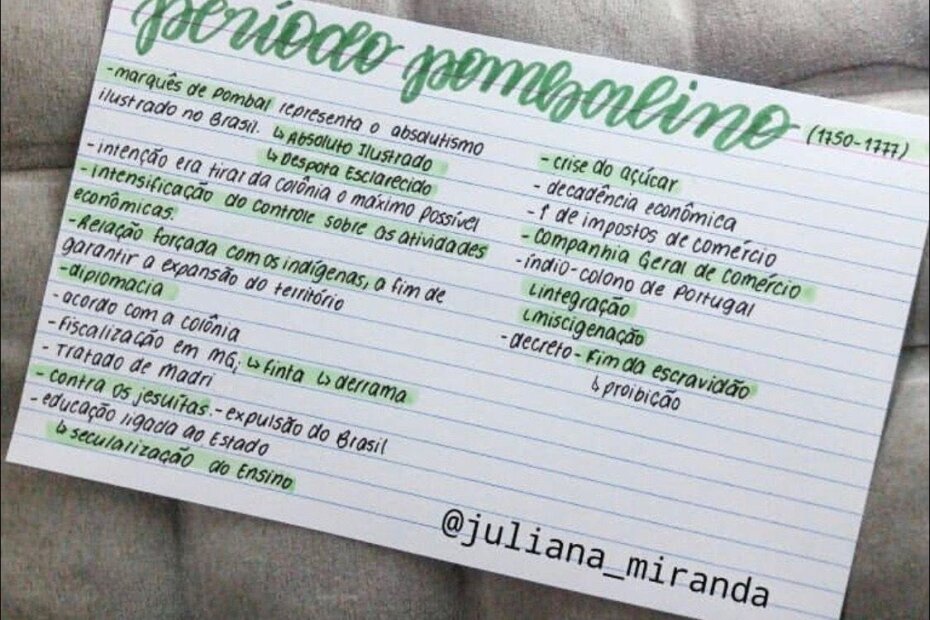 período pombalino (1750-1777)
-marquês de Pombal representa o absolutismo
ilustrado no Brasil. ↳ Absoluto Ilustrado
↳ Despota Esclarecido
-intenção era tirar da colônia o máximo possível
-intensificação do controle sobre as atividades
econômicas.
-Relação forçada com os indígenas, a fim de
garantir a expansão do território
-diplomacia
-acordo com a colônia
-fiscalização em MG; ↳ finta ↳ derrama
-Tratado de Madri
-contra os jesuítas. -expulsão do Brasil
-educação ligada ao Estado
↳ secularização do Ensino
-crise do açúcar
-decadência econômica
-↑ de impostos de comércio
-Companhia Geral de comércio
-índio-colono de Portugal
↳integração
↳miscigenação
-decreto-Fim da escravidão
↳ proibição
@juliana_miranda